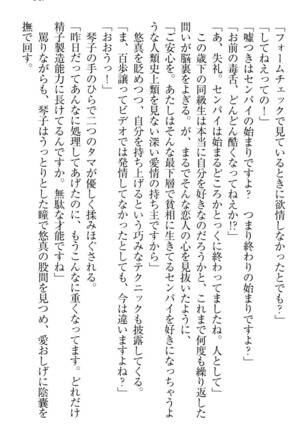 「フォームチェックで見ているときに欲情しないでください。どれだけ
してねえっての！」
「嘘つきはセンパイの始まりですよ？　つまり終わりの始まりということでも？」
「お前の毒舌、どんどん酷くなってねえか!?」
「あ、失礼。センパイは始まるどころかとっくに終わってましたね。人として」
この歳下の同級生は本当に自分を好きなのだろうかと、これまで何度も繰り返した
問いが脳裏をよぎる。が、まるでそんな恋人の心を見抜いたように、
「ご安心を。あたしはそんな最下層で貧相に生きてるセンパイを好きになっちゃうよ
うな人類史上類を見ない深い愛情の持ち主ですから」
悠真を貶めつつ、自分を持ち上げるという巧みなテクニックも披露してくる。
「ま、百歩譲ってビデオでは発情してなかったとしても、今は違いますよね？」
「おおうっ！」
琴子の手のひらで二つのタマが優しく揉みほぐされる。
「昨日だってあんなに処理してあげたのに、もうこんなに重くなってます。どれだけ
精子製造能力に長けてるんですか。無駄な才能ですね」
罵りながらも、琴子はうっとりとした瞳で悠真の股間を見つめ、愛おしげに陰嚢を
撫で回す。